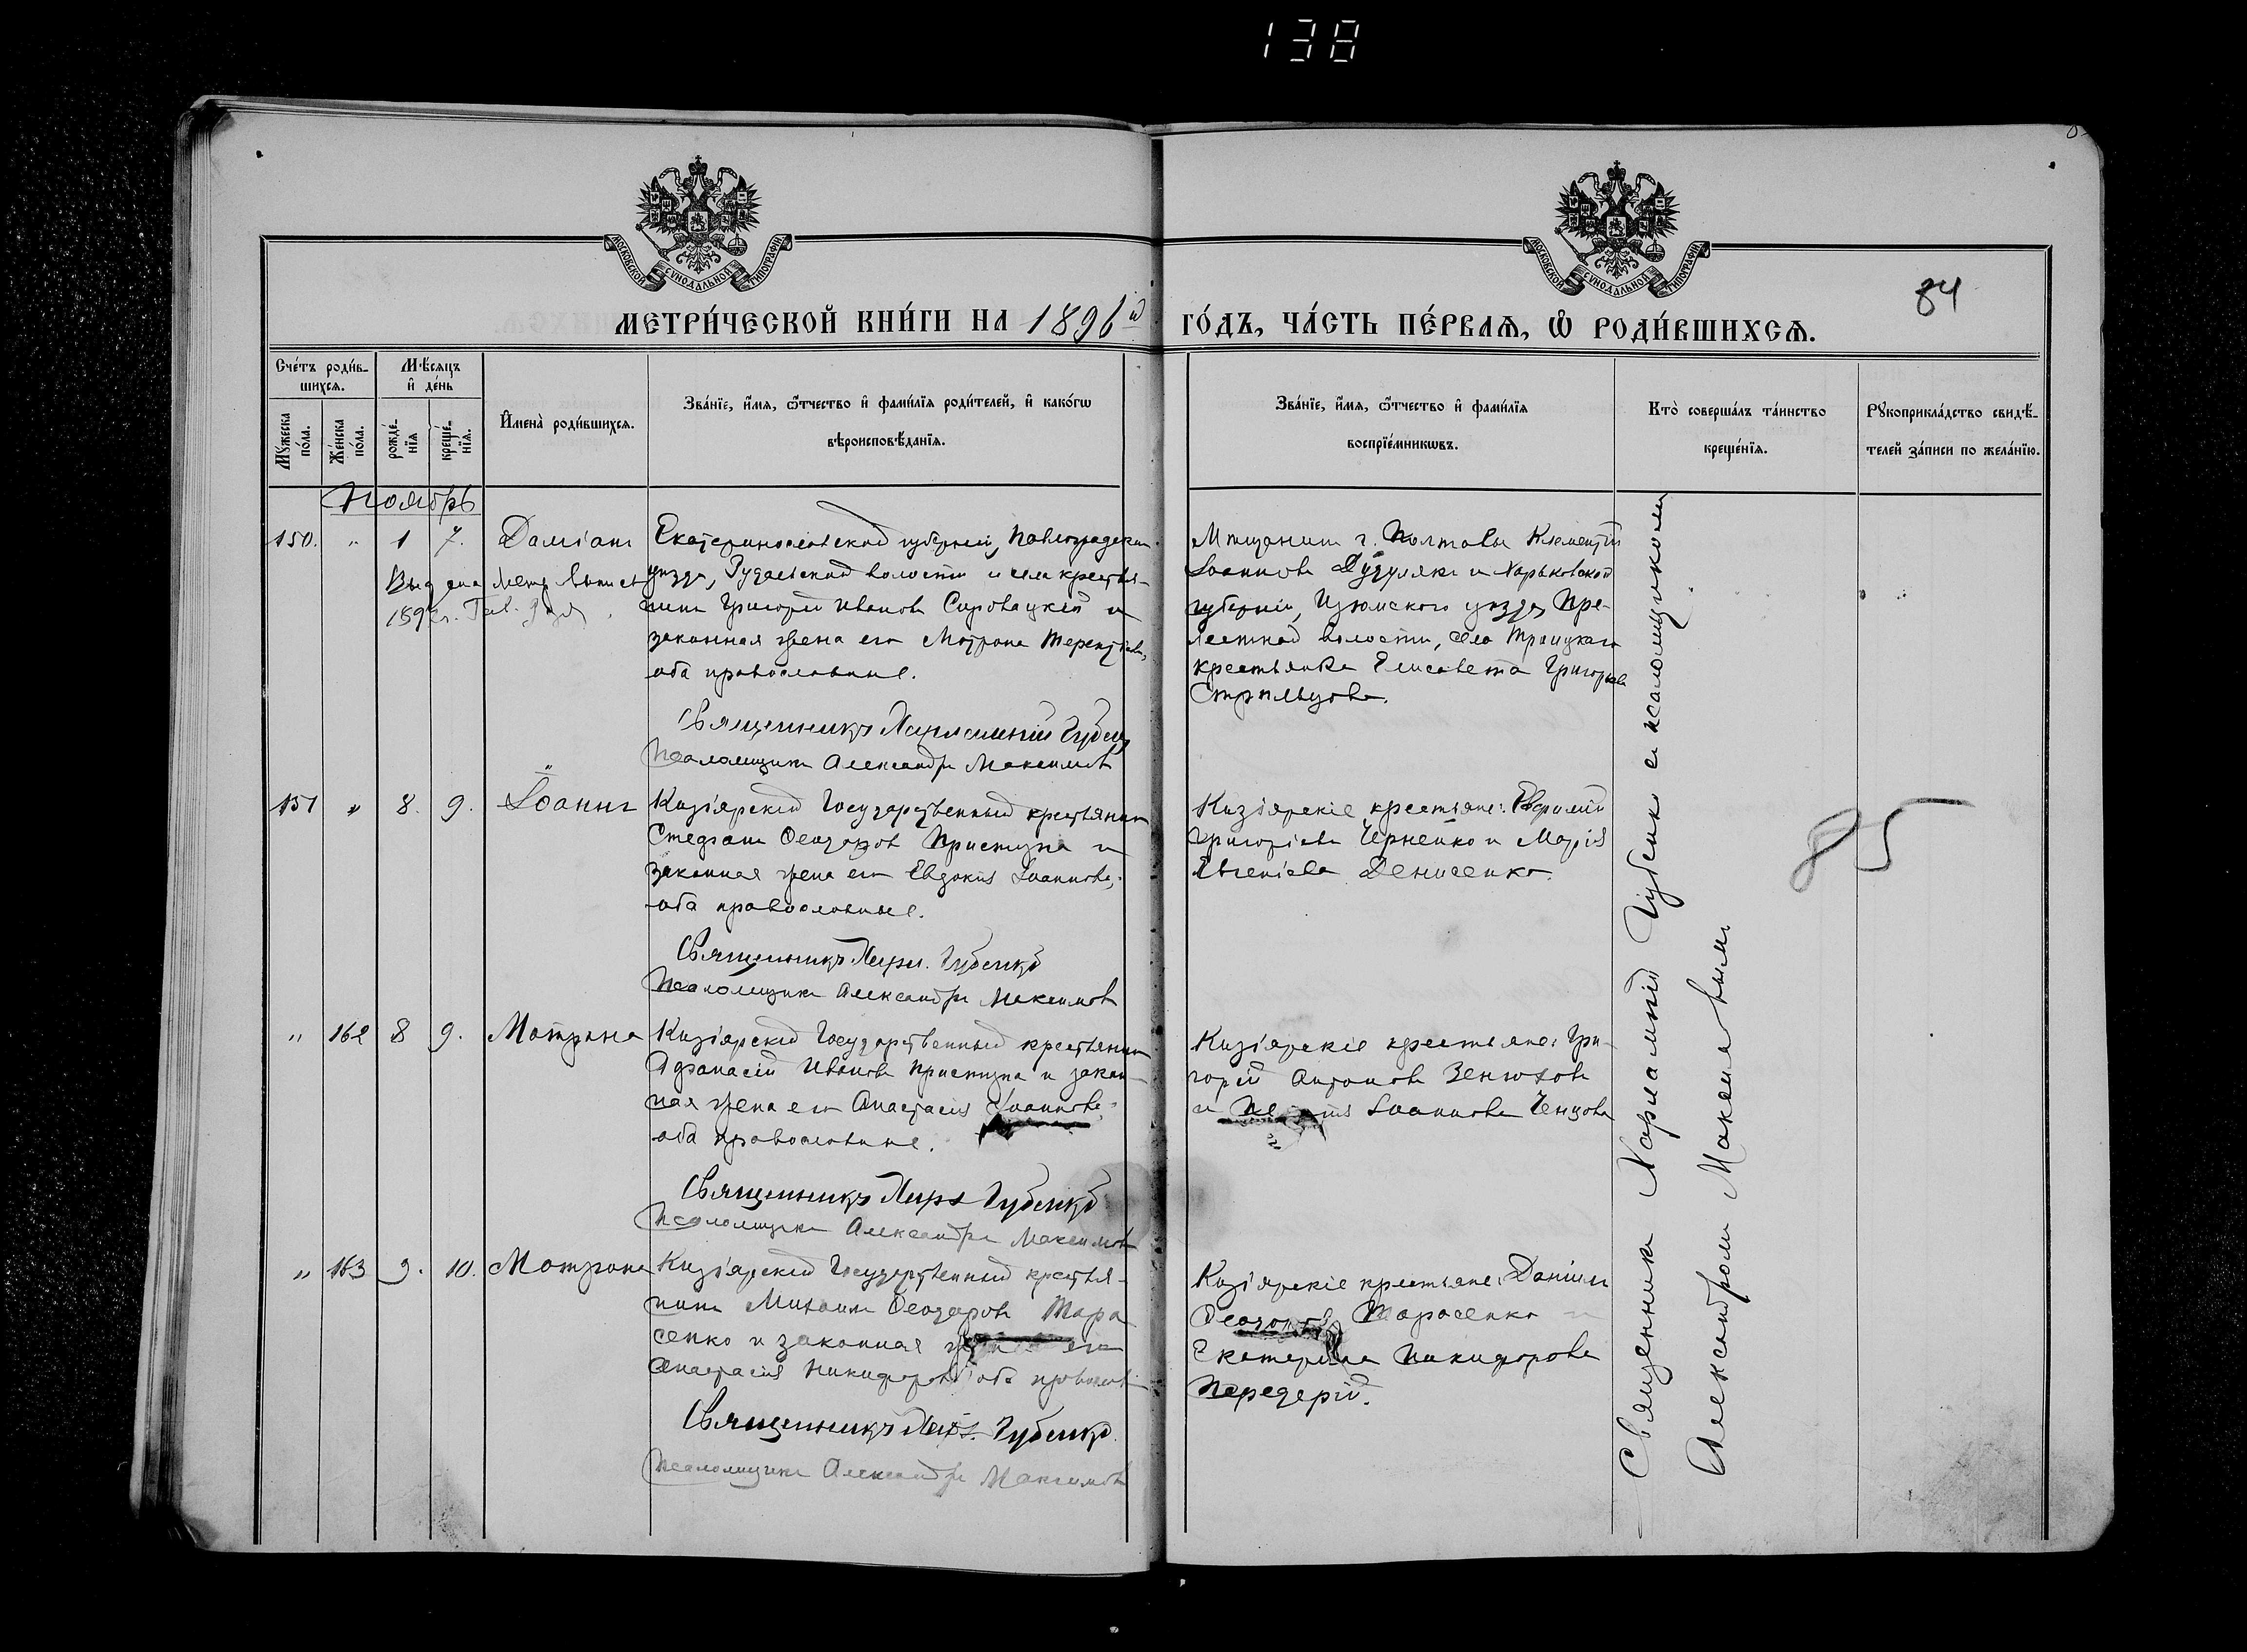 138
МОСКОВСКОЙ СУНОДАЛЬНОЙ ТИПОГРАФІИ
МОСКОВСКОЙ СУНОДАЛЬНОЙ ТИПОГРАФІИ
84
МЕТРИ́ЧЕСКОЙ КНИ́ГИ НА 1896й ГО́ДЪ, ЧА́СТЬ ПЕ́РВАѦ, Ѡ РОДИ́ВШИХСѦ.
Сче́тъ роди́вшихсѧ.
Мꙋжеска по́ла.
Же́нска по́ла.
Мѣ́сѧцъ и де́нь
рожде́нїѧ
креще́нїѧ.
Имена̀ роди́вшихсѧ.
Зва́нїе, и́мѧ, ѻ҆́тчество и фами́лїѧ роди́телей, и како́гѡ
вѣроисповѣ́данїѧ.
Зва́нїе, и́мѧ, ѻ҆́тчество и фами́лїѧ
воспрїе́мникѡвъ.
Кто̀ соверша́лъ та́инство
креще́нїѧ.
Рꙋкоприкла́дство свидѣ́-
телей за́писи по жела́нїю.
Ноябрь
150. " 1 7. Даміанъ
Екатеринославской губерніи, Павлоградскаго
уѣзда, волости и села крестья-
нинъ Григорій Ивановъ Сировацкій и
законная жена его Мотрона Терентіева,
оба православные.
Священникъ Харлампій Губенко
Псаломщикъ Александръ Максимовъ
Мѣщанинъ г. Полтавы Климентій
Іоанновъ и Харьковской
губерніи, Изюмскаго уѣзда, Пре-
лестной волости, села Троицкаго
крестьянка Елисавета Григорьева
Стрѣльцова.
151 " 8. 9. Іоаннъ
Кизіярскій Государственный крестьянинъ
Стефанъ Ѳеодоровъ Приступа и
законная жена его Евдокія Іоаннова,
оба православные.
Священникъ Харл. Губенко
Псаломщикъ Александръ Максимовъ
Кизіярскіе крестьяне: Евфимій
Григоріевъ Черненко и Марія
Евгеніева Денисенко.
" 162 8 9. Мотрона
Кизіярскій Государственный крестьянинъ
Афанасій Ивановъ Приступа и закон-
ная жена его Анастасія Іоаннова,
оба православные.
Священникъ Харл. Губенко
Псаломщикъ Александръ Максимовъ
Кизіярскіе крестьяне: Гри-
горій Антоновъ Зенюховъ
и Іоаннова Ченцова
" 163 9. 10. Мотрона
Кизіярскій Государственный крестья-
нинъ Михаилъ Ѳеодоровъ Тара
сенко и законная жена его
Анастасія Никифорова оба православ
Священникъ Харл. Губенко
Псаломщикъ Александръ Максимовъ
Кизіярскіе крестьяне: Даніилъ
Ѳеодоровъ Тарасенко и
Екатерина Никифорова
Передерій.
Священникъ Харлампій Губенко съ псаломщикомъ
Александромъ Максимовымъ
85